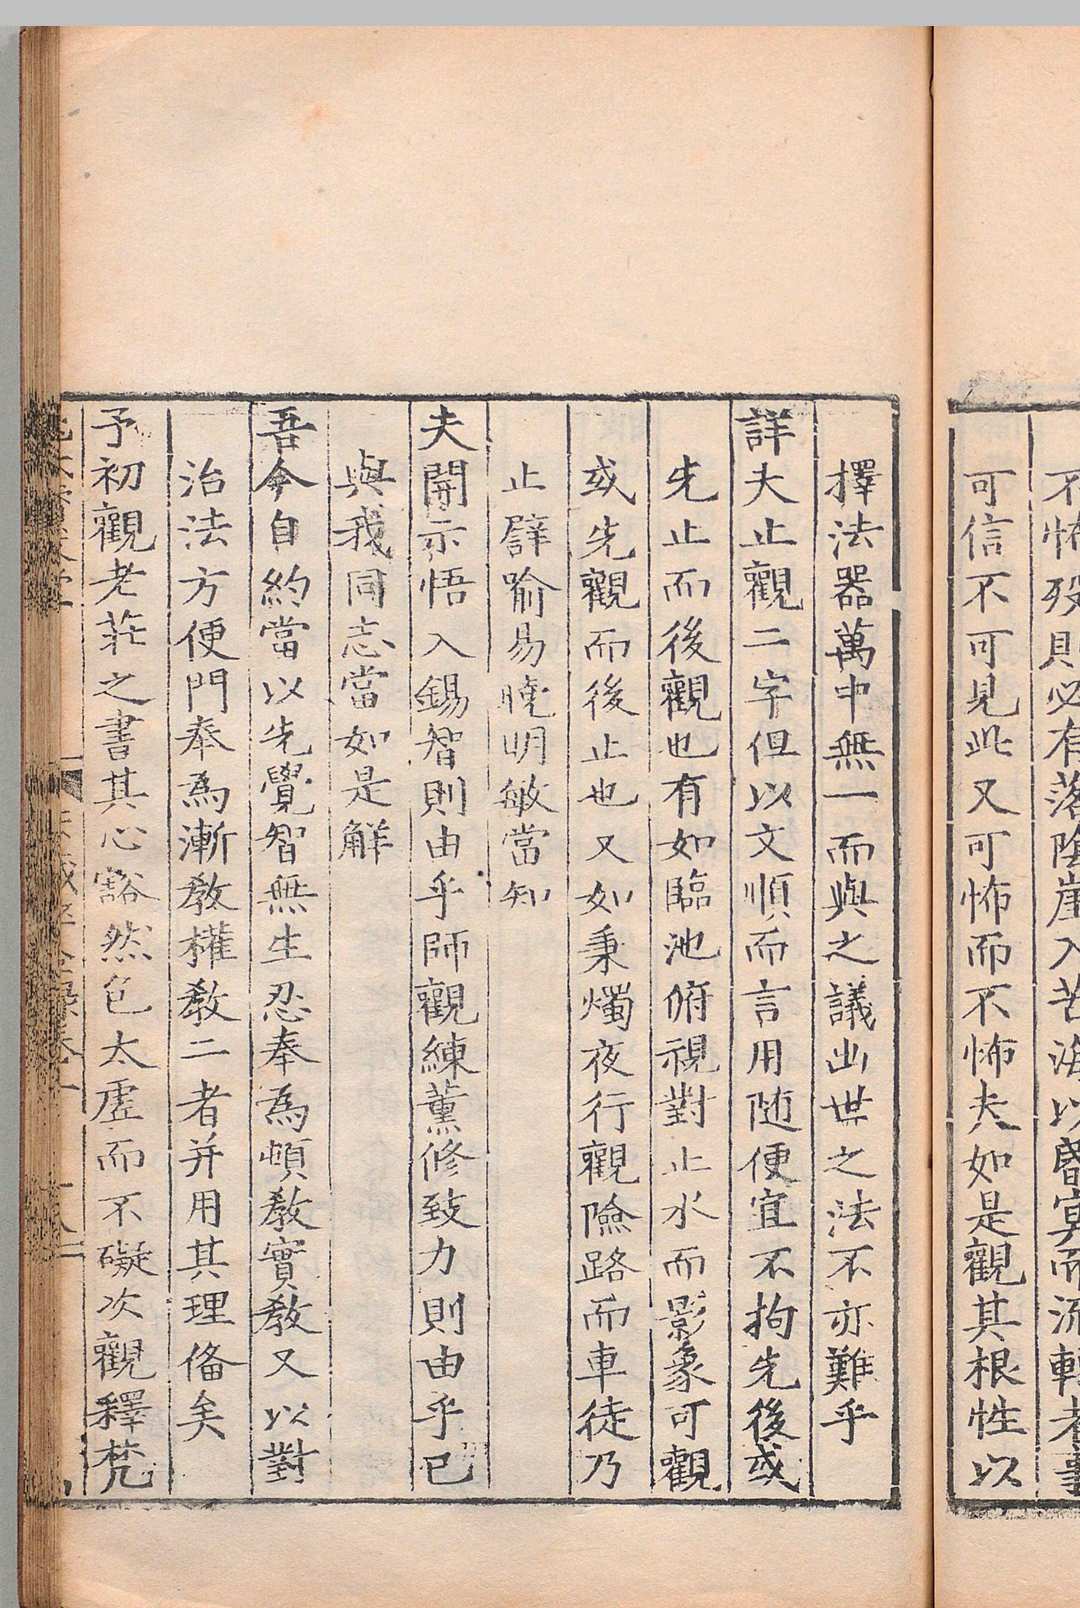 不怖歿則必有落陰崖入苦海以昏冥而流轉者事
可信不可見此又可怖而不怖夫如是觀其根性以
擇法器萬中無一而與之議出世之法不亦難乎
詳夫止觀二字但以文順而言用随便宜不拘先後或
先止而後觀也有如臨池俯視對止水而影象可觀
或先觀而後止也又如秉燭夜行觀險路而車徒乃
止譬喻易曉明敏當知
夫開示悟入錫智則由乎師觀練薰修致力則由乎已
與我同志當如是解
吾今自約當以先覺智無生忍奉為頓教實教又以對
治法方便門奉為漸教權教二者并用其理俻矣
予初觀老莊之書其心豁然包太虛而不礙次觀釋梵